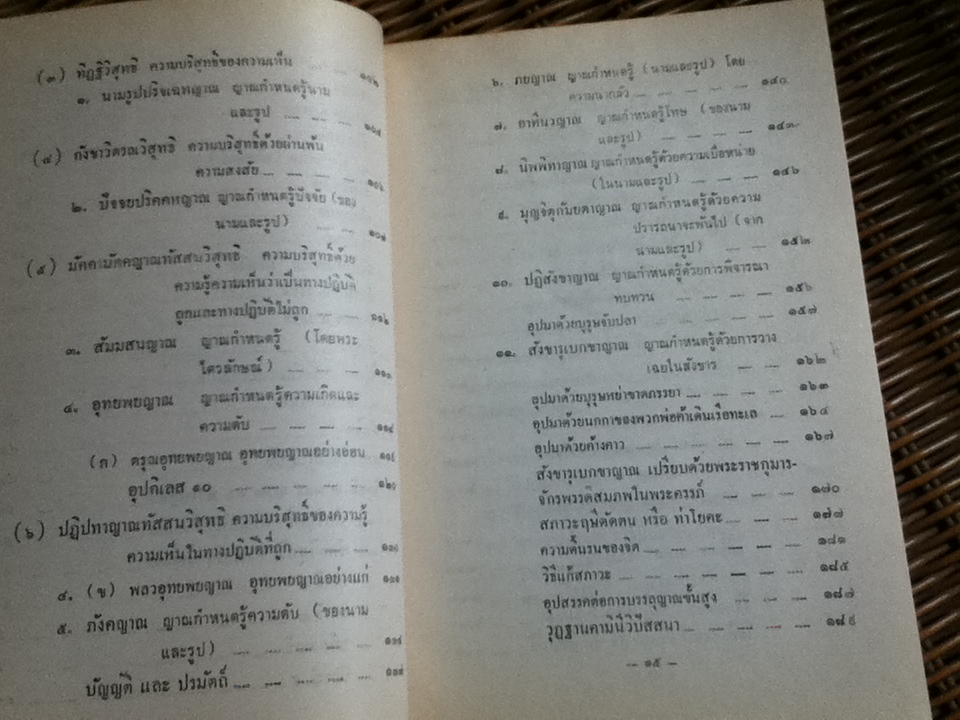 (๓) ทิฏฐิวิสุทธิ ความบริสุทธิ์ของความเห็น
๑. นามรูปปริจเฉทญาณ ญาณกำหนดรู้นาม
และรูป
(๔) กังขาวิตรณวิสุทธิ ความบริสุทธิ์ด้วยผ่านพ้น
ความสงสัย
๒. ปัจจยปริคคหญาณ ญาณกำหนดรู้ปัจจัย (ของ
นามและรูป)
(๕) มัคคามัคคญาณทัสสนวิสุทธิ ความบริสุทธิ์ด้วย
ความรู้ความเห็นว่าเป็นทางปฏิบัติ
ถูกและทางปฏิบัติไม่ถูก
๓. สัมมสนญาณ ญาณกำหนดรู้ (โดยพระ
ไตรลักษณ์)
๔. อุทยพยญาณ ญาณกำหนดรู้ความเกิดและ
ความดับ
(ก) ตรุณอุทยพยญาณ อุทยพยญาณอย่างอ่อน
อุปกิเลส ๑๐
(๖) ปฏิปทาญาณทัสสนวิสุทธิ ความบริสุทธิ์ของความรู้
ความเห็นในทางปฏิบัติที่ถูก
๔. (ข) พลวอุทยพยญาณ อุทยพยญาณอย่างแก่
๕. ภังคญาณ ญาณกำหนดรู้ความดับ (ของนาม
และรูป)
บัญญัติ และ ปรมัตถ์
๖. ภยญาณ ญาณกำหนดรู้ (นามและรูป) โดย
ความน่ากลัว — — — — ๑๔๐
๗. อาทีนวญาณ ญาณกำหนดรู้โทษ (ของนาม
และรูป) — — — — ๑๔๓
๘. นิพพิทาญาณ ญาณกำหนดรู้ด้วยความเบื่อหน่าย
(ในนามและรูป) — — — ๑๔๖
๙. มุญจิตุกัมยตาญาณ ญาณกำหนดรู้ด้วยความ
ปรารถนาจะพ้นไป (จาก
นามและรูป) — — ๑๕๒
๑๐. ปฏิสังขาญาณ ญาณกำหนดรู้ด้วยการพิจารณา
ทบทวน — — — — ๑๕๖
อุปมาด้วยบุรุษจับปลา ๑๕๗
๑๑. สังขารุเบกขาญาณ ญาณกำหนดรู้ด้วยการวาง
เฉยในสังขาร — — ๑๖๒
อุปมาด้วยบุรุษหย่าขาดภรรยา — — — — ๑๖๓
อุปมาด้วยนกกาของพวกพ่อค้าเดินเรือทะเล — ๑๖๔
อุปมาด้วยค้างคาว — — — — — ๑๖๗
สังขารุเบกขาญาณ เปรียบด้วยพระราชกุมาร-
จักรพรรดิสมภพในพระครรภ์ — — — ๑๗๐
สภาวะฤษีดัดตน หรือ ท่าโยคะ — — — ๑๗๗
ความดิ้นรนของจิต — — — — — ๑๘๑
วิธีแก้สภาวะ — — — — — — ๑๘๕
อุปสรรคต่อการบรรลุญาณขั้นสูง — — — — ๑๘๗
วุฏฐานคามินีวิปัสสนา — — — — ๑๘๙
— ๑๕ —